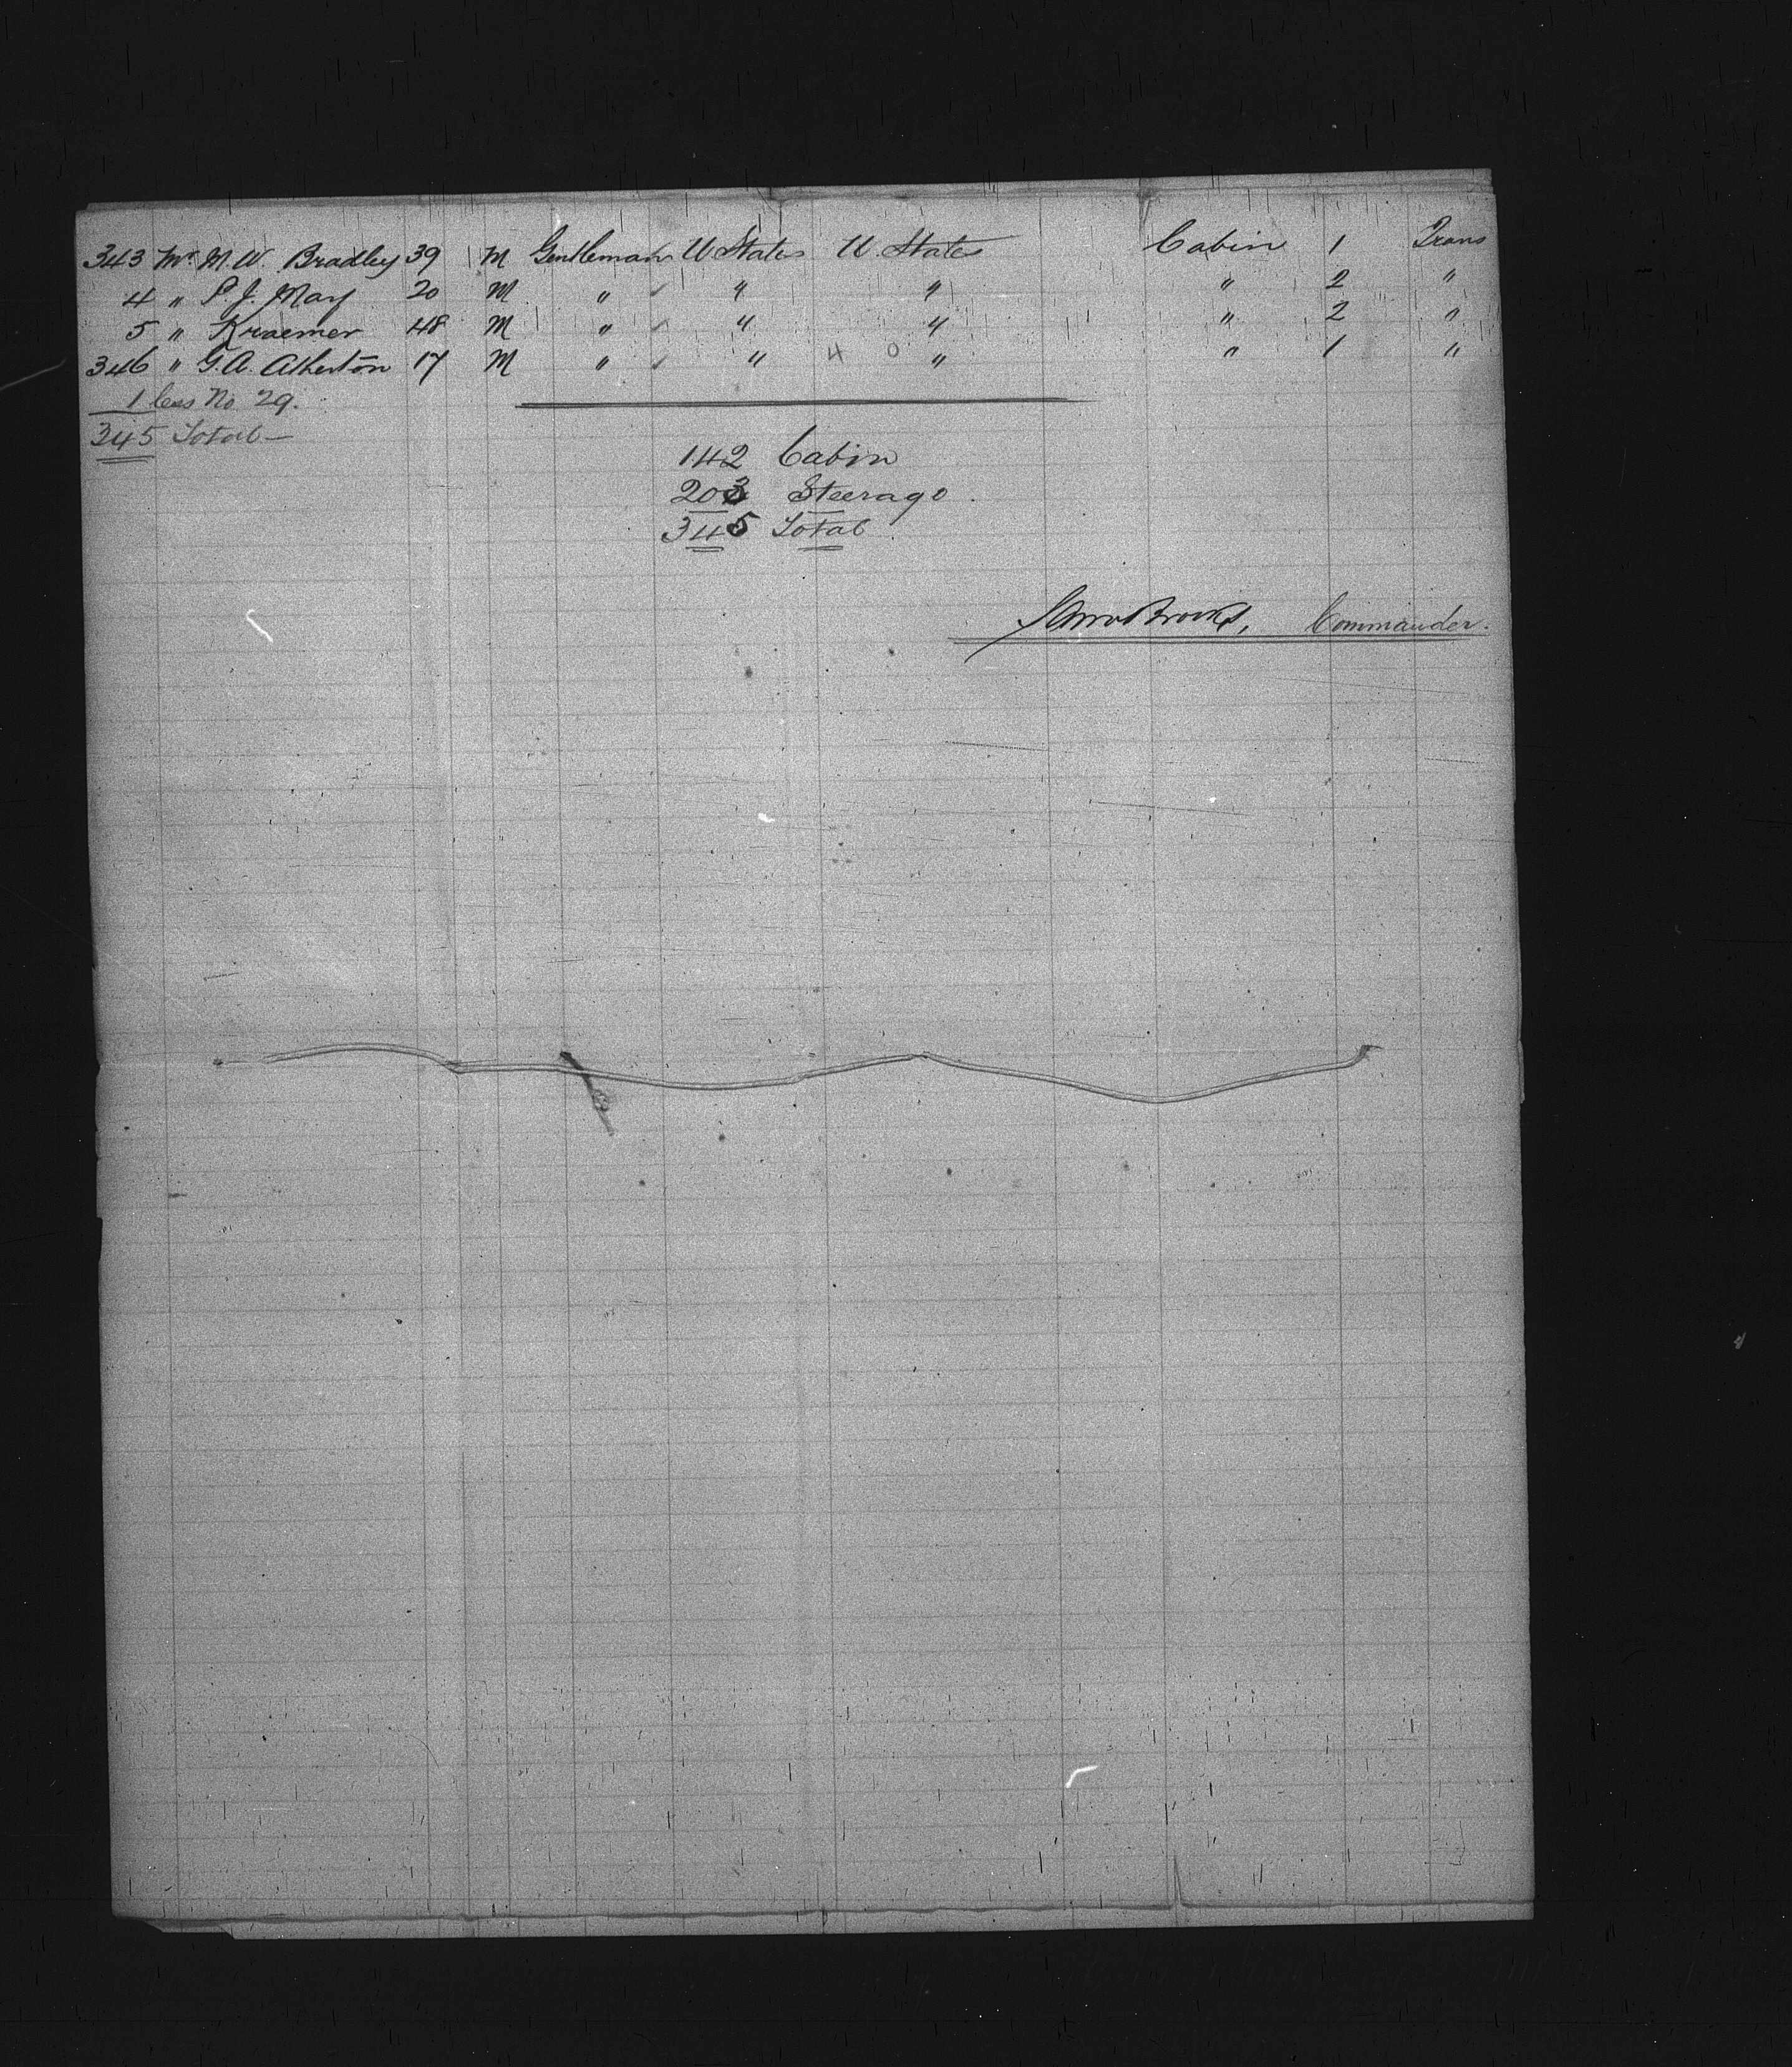 343 Mr. M. W. Bradley 39 M Gentleman U States U. States Cabin 1 Trans
4 " P. J. May 20 M " " " " 2 "
5 " Kraemer 48 M " " " " 2 "
346 " G. A. Atherton 17 M " " 4 0 " " 1 "
1 less No 29.
345 Total
142 Cabin
203 Steerage.
345 Total
Brooks, Commander.